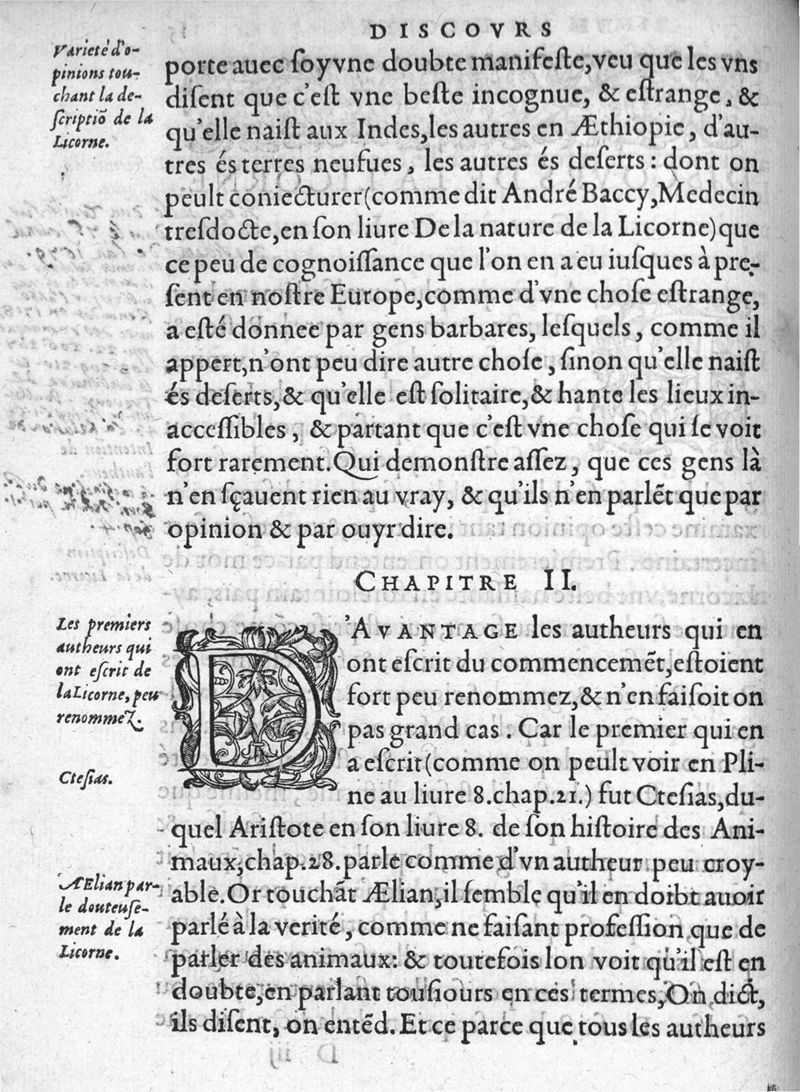 DISCOVRS
Varieté d'o-
pinions tou-
chant la de-
scriptiõ de la
Licorne.
porte auec soy vne doubte manifeste, veu que les vns
disent que c'est vne beste incognue, & estrange, &
qu'elle naist aux Indes, les autres en Æthiopie, d'au-
tres és terres neufues, les autres és deserts : dont on
peult coniecturer (comme dit André Baccy, Medecin
tresdocte, en son liure De la nature de la Licorne) que
ce peu de cognoissance que l'on en a eu iusques à pre-
sent en nostre Europe, comme d'vne chose estrange,
a esté donnee par gens barbares, lesquels, comme il
appert, n'ont peu dire autre chose, sinon qu'elle naist
és deserts, & qu'elle est solitaire, & hante les lieux in-
accessibles, & partant que c'est vne chose qui se voit
fort rarement. Qui demonstre assez, que ces gens là
n'en sçauent rien au vray, & qu'ils n'en parlẽt que par
opinion & par ouyr dire.
CHAPITRE II.
Les premiers
autheurs qui
ont escrit de
la Licorne, peu
renommez.
D'AVANTAGE les autheurs qui en
ont escrit du commencemẽt, estoient
fort peu renommez, & n'en faisoit on
pas grand cas. Car le premier qui en
a escrit (comme on peult voir en Pli-
ne au liure 8. chap. 21.) fut Ctesias, du-
Ctesias.
quel Aristote en son liure 8. de son histoire des Ani-
maux, chap. 28. parle comme d'vn autheur peu croy-
able. Or touchãt Ælian, il semble qu'il en doibt auoir
parlé à la verité, comme ne faisant profession que de
parler des animaux: & toutefois lon voit qu'il est en
doubte, en parlant tousiours en ces termes, On dict,
ils disent, on entẽd. Et ce parce que tous les autheurs
Ælian par-
le douteuse-
ment de la
Licorne.